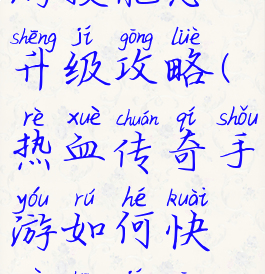 shēng jí gōng lüè
升级攻略(
rè xuè chuán qí shǒu
热血传奇手
yóu rú hé kuài
游如何快